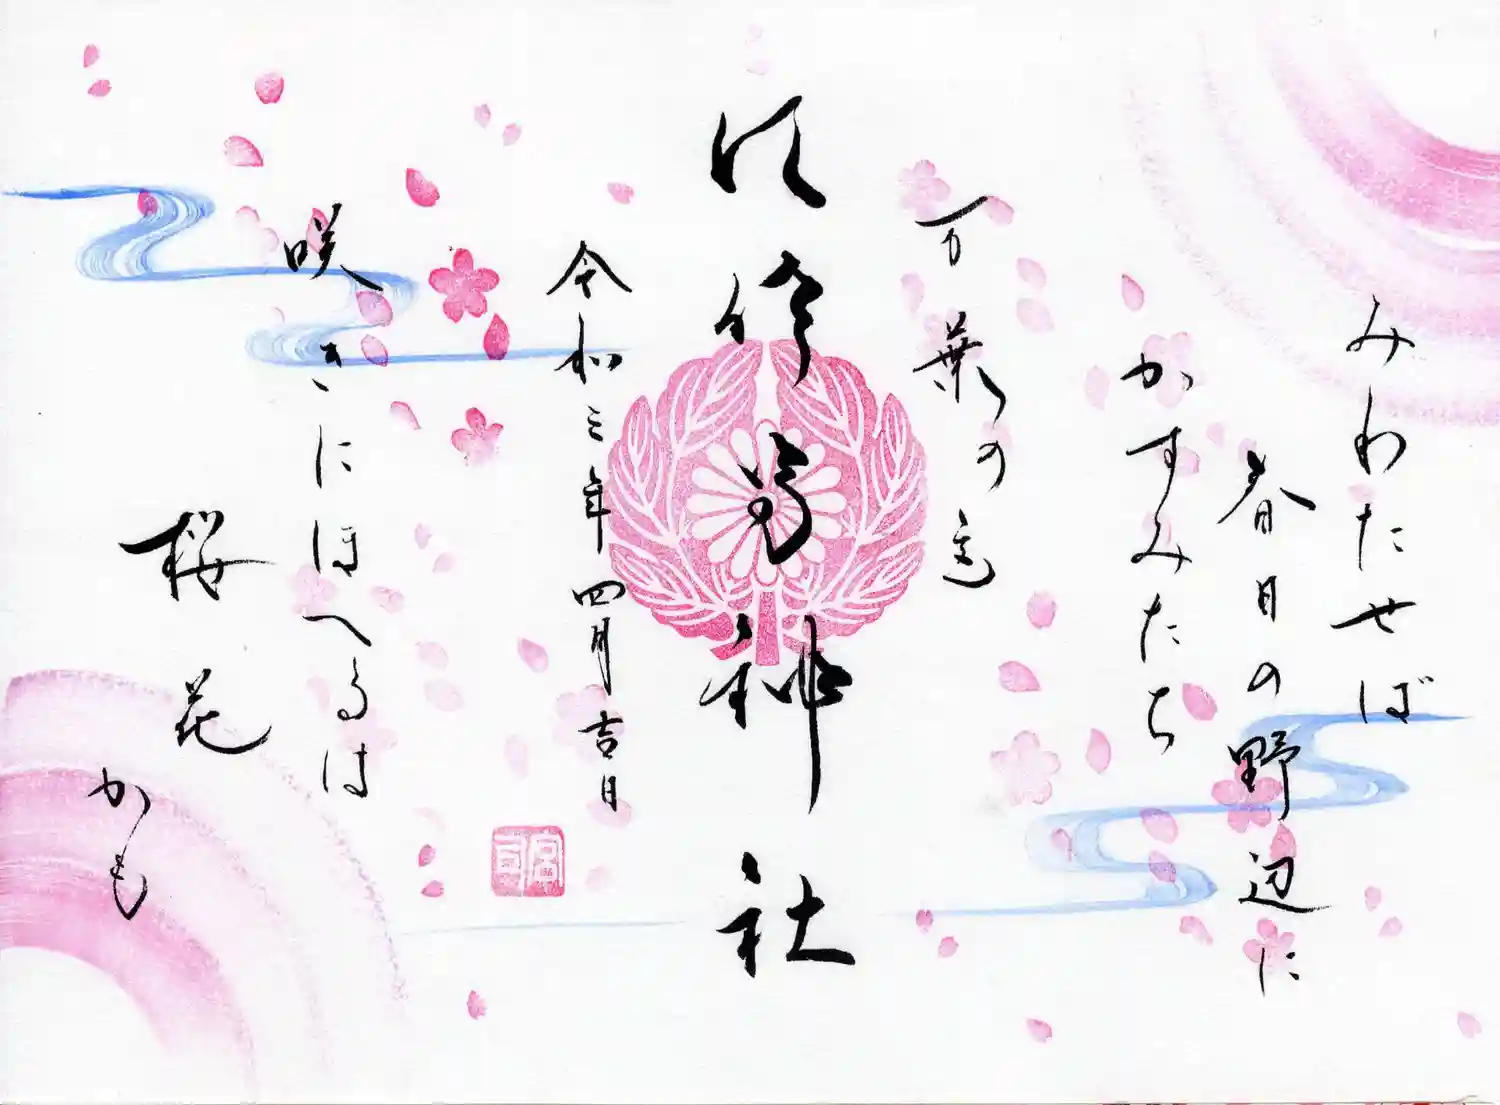 みわたせば
春日の野辺に
かすみたち
万葉の道
神社
令和三年四月吉日
咲きにほへるは
桜花
かも
宮司